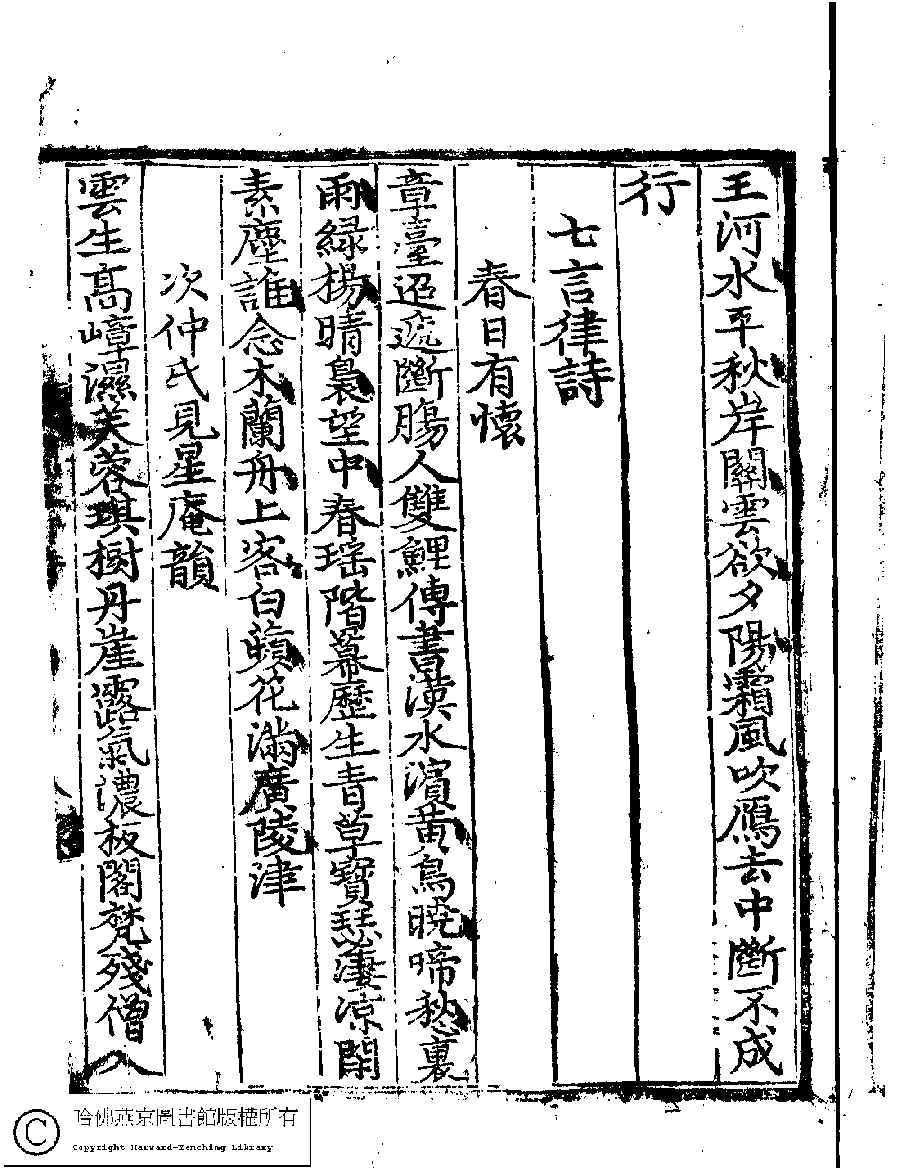 王河水平秋岸關雲欲夕陽霜風吹鴈去中斷不成
行
七言律詩
春日有懷
章臺迢遞斷膓人雙鯉傳書漢水濱黃鳥曉啼愁裏
雨綠楊晴裊望中春瑤階蓂歷生青草寶瑟凄凉閉
素塵誰念木蘭舟上客白蘋花滿廣陵津
次仲氏見星庵韻
雲生高嶂濕芙蓉琪樹丹崖露氣濃板閣梵殘僧入
哈佛燕京圖書館版權所有
Copyright Harvard-Yenching Library